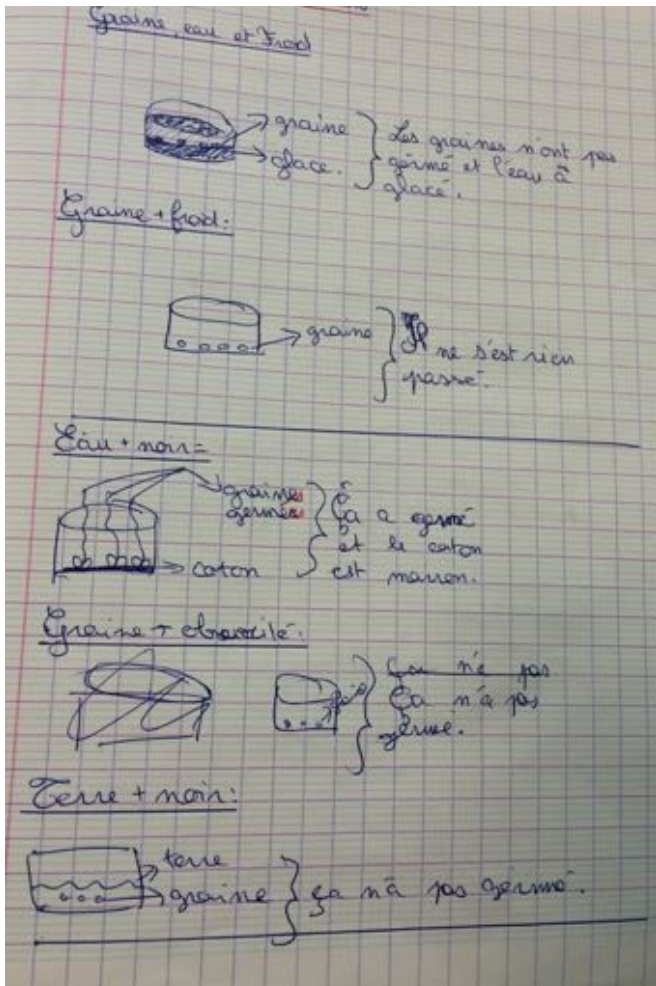 Graine, eau et Froid
graine
glace.
Les graines n'ont pas
gérmé et l'eau à
glacé.
Graine + froid:
graine
Il
ne s'est rien
passé.
Eau + noir=
graines
germées
coton
Ça a germé
et le coton
est marron.
Graine + obscurité:
Ça n'a pas
Ça n'a pas
germé.
Terre + noir:
terre
graine
ça n'a pas gérmé.